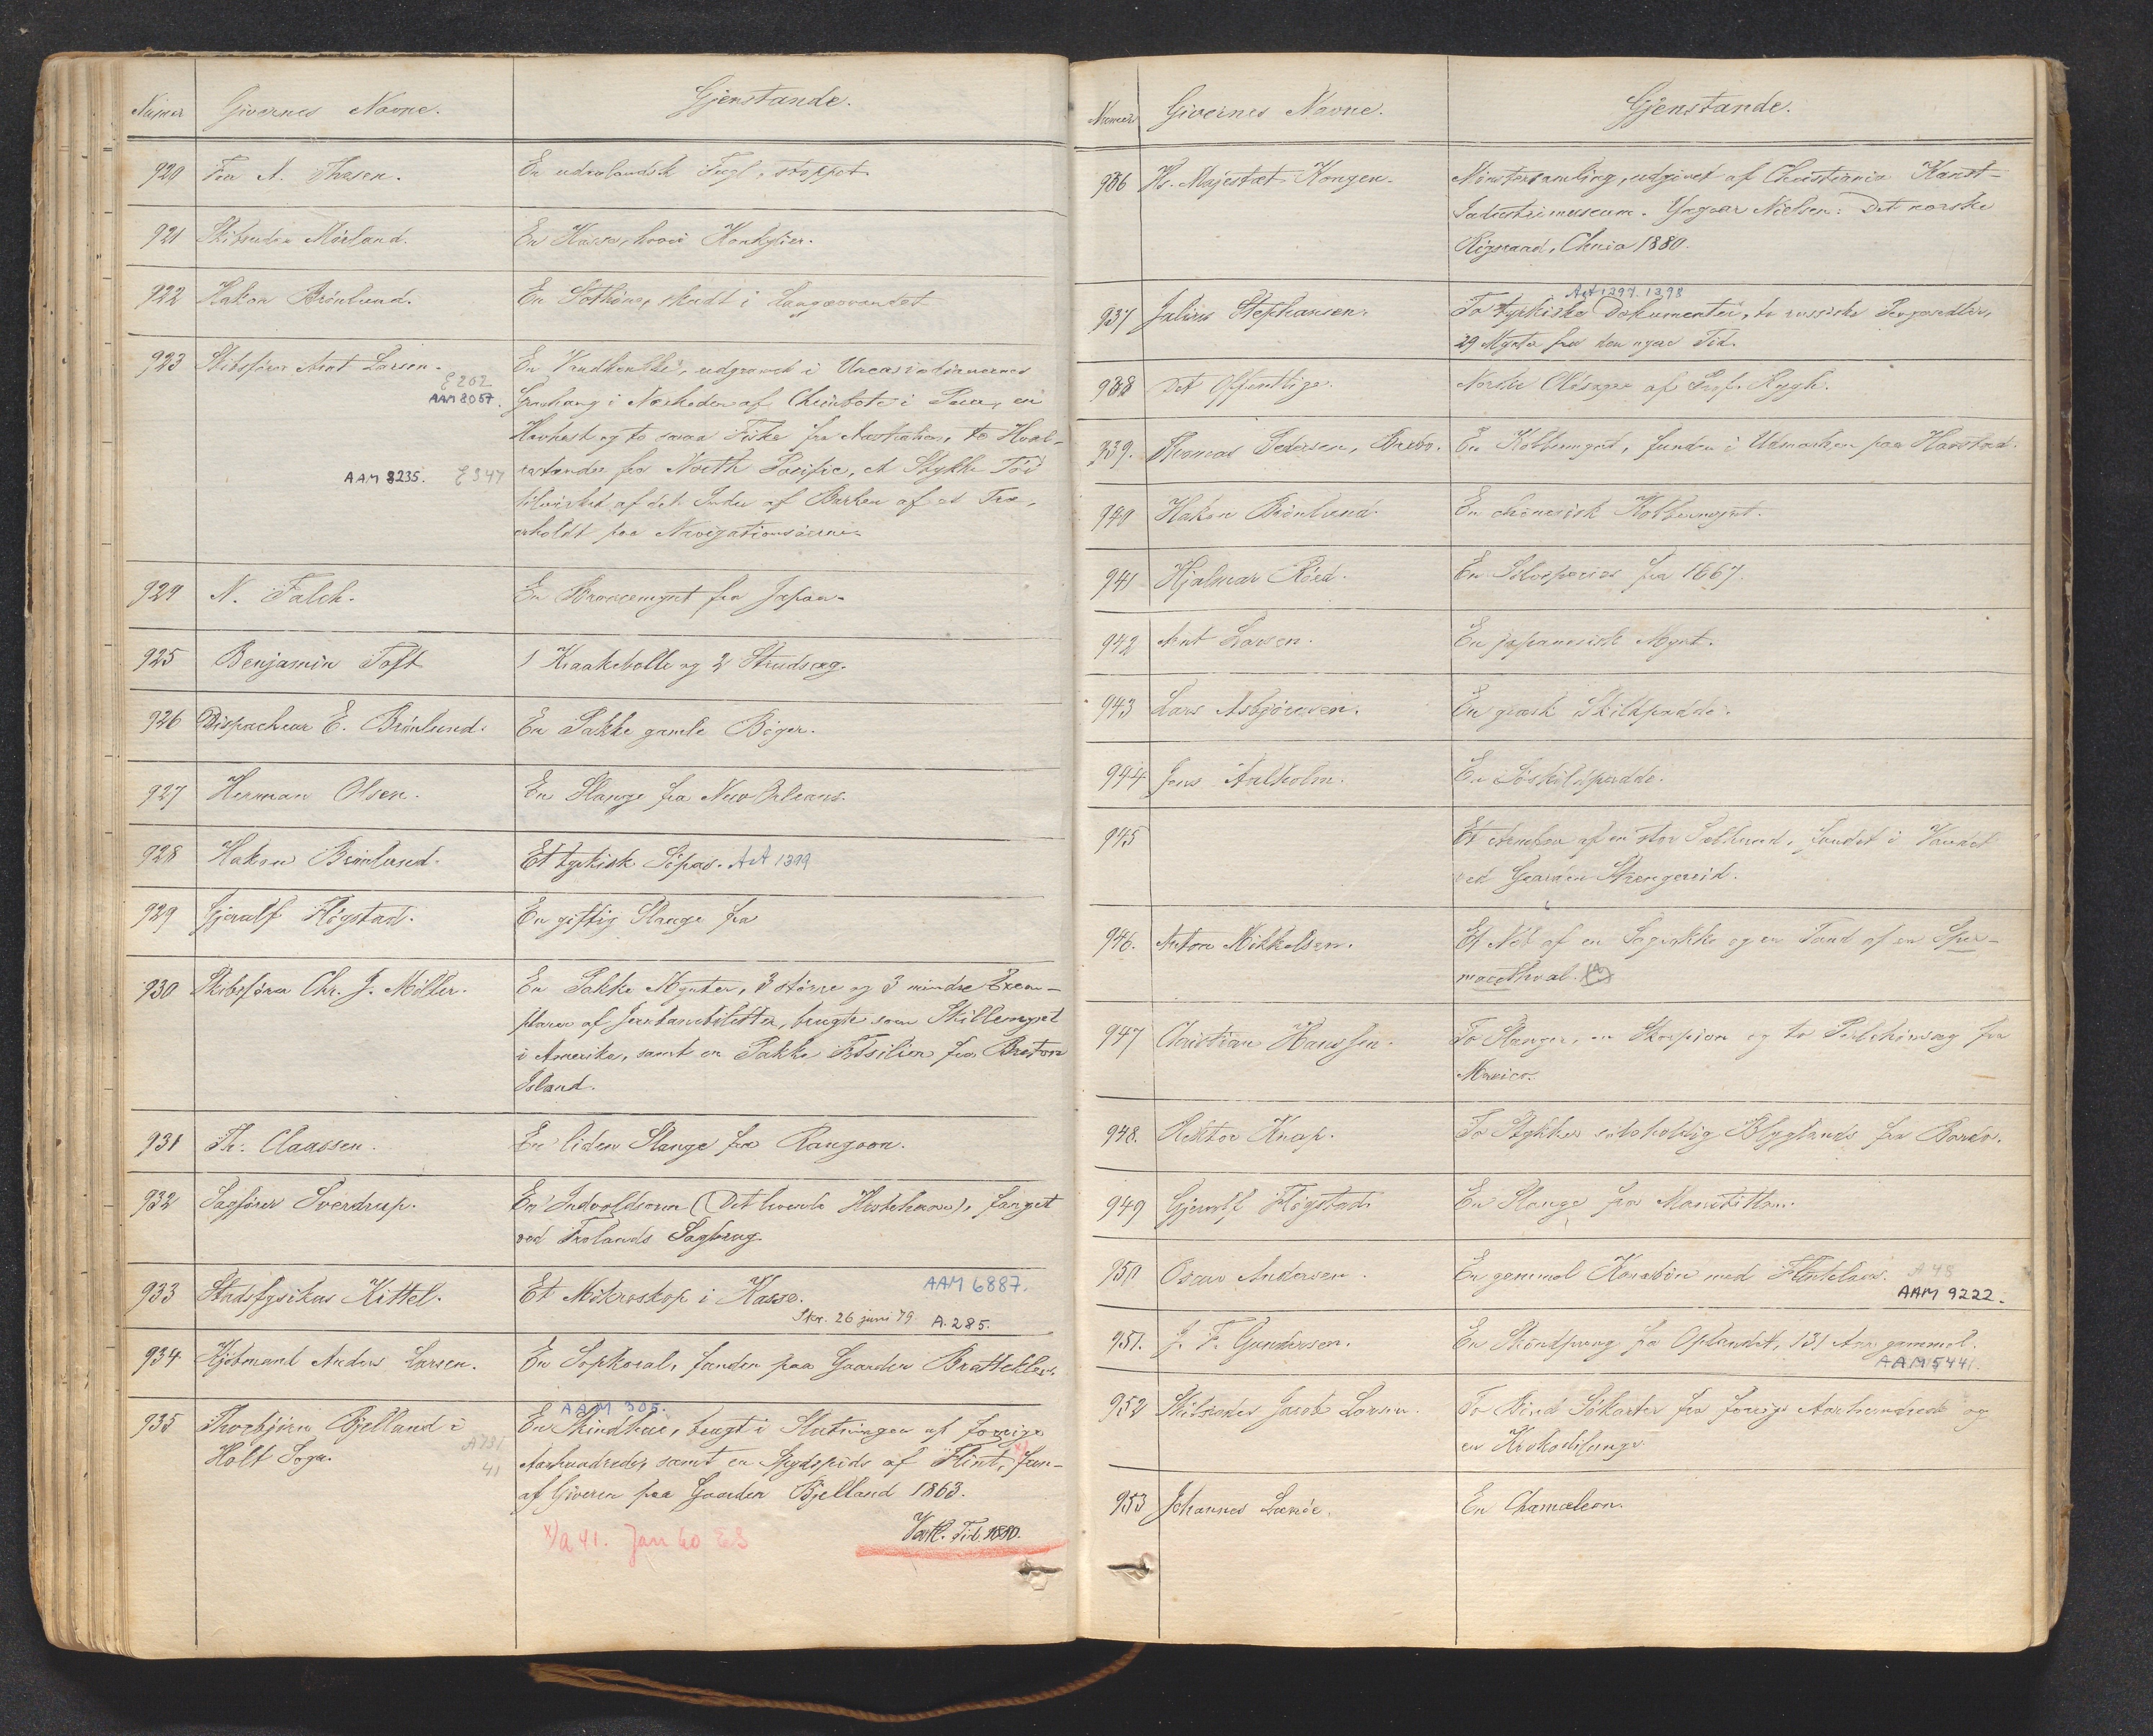 Numer Givernes Navne. Gjenstande.
920 Fru A. Thasen. En udenlandsk Fugl, stoppet.
921 Skibsreder Mörland. En Kasse, hvori Konkylier.
922 Hakon Brönlund. En Sothöne, skudt i Langsævandet
923 Skibsförer Arnt Larsen. En Vandkrukke, udgravet i
E 202
AAM 8057. Gravhaug i Nærheden af Chimbote i Peru, en
Havhest og to smaa Fiske fra Australien, to Hval-
AAM 8235. E 347 rostænder fra North Pacific, et Stykke Töi
tilvirket af det Indre af Barken af et Træ,
erholdt paa Navigationsöerne.
924 N. Falch. En Broncemynt fra Japan.
925 Benjamin Toft 1 Kraakebolle og 2 Strudsæg.
926 Dispacheur E. Brönlund. En Pakke gamle Böger.
927 Herman Olsen. En Slange fra New Orleans.
928 Hakon Brönlund. Et tyrkisk Söpas. AsA 1399
929 Gjerulf Flögstad. En giftig Slange fra
930 Skibsförer Chr. J. Möller. En Pakke Mynter, 3 större og 3 mindre Exem-
plarer af Jernbanebiletter, brugte som Skillemynt
i Amerika, samt en Pakke Fossilier fra Breton
Island.
931 Th. Claassen. En liden Slange fra Rangoon.
932 Sagförer Sverdrup. En Indvoldsorm (Det levende Hestehaar), fanget
ved Frolands Sagbrug.
933 Stadsfysikus Kittel. Et Mikroskop i Kasse. AAM 6887.
Skr. 26 juni 79. A. 285.
934 Kjöbmand Anders Larsen. En Sopkoral, funden paa Gaarden Brattekleiv.
AAM 305.
935 Thorbjörn Bjelland i En Skindhue, brugt i Slutningen af forrige
Holt Sogn. A 731. 41 Aarhundrede, samt en Spydspids af Flint, x) fun-
af Giveren paa Gaarden Bjelland 1863.
Vestl. Tid. 1880.
x/a 41. Jan 60 ES
Numer Givernes Navne. Gjenstande.
936 Hs. Majestæt Kongen. Mönstersamling, udgivet af Christiania Kunst-
Industrimuseum. Yngvar Nielsen: Det norske
Rigsraad, Chnia 1880.
AsA 1397. 1398
937 Julius Stephansen. To tyrkiske Dokumenter, to russiske Pengesedler,
29 Mynter fra den nyere Tid.
938 Det Offentlige. Norske Oldsager af Prof. Rygh.
939. Thomas Pedersen, Brebo. En Kobbermynt, funden i Udmarken paa Harstad.
940 Hakon Brönlund. En chinesisk Kobbermynt.
941 Hjalmar Röed. En Sölvspecies fra 1667.
942 Arnt Larsen. En japanesisk Mynt.
943 Lars Asbjörnsen. En græsk Skildpadde.
944 Jens Aalholm. En Söskildpadde.
945 Et af en stor Sælhund, fundet i Vandet
ved Gaarden Strengereid.
946. Anton Mikkelsen. Et Næb af en og en Tand af en Sper-
macethval.
947 Christian Hanssen. To Slanger, en Skorpion og to Perlehönsæg fra
Mexico.
948. Rektor Knap. To Stykker sölvholdig Blyglands fra
949 Gjerulf Flögstad. En Slange fra
950 Oscar Andersen. En gammel Karabin med Flintelaas. A 48
AAM 9222.
951. J. F. Gundersen. En Skindpung fra Oplandet, 131 Aar gammel.
AAM 5441.
952 Skibsreder Jacob Larsen. To Bind Sökarter fra forrige Aarhundrede og
en Krokodilunge.
953 Johannes En Chamæleon.